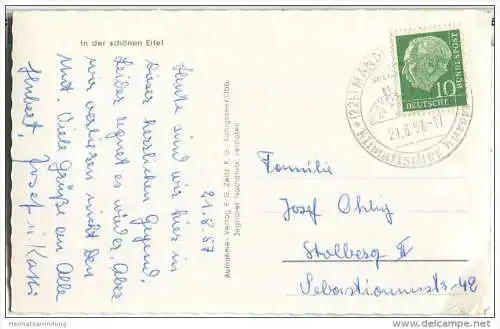 In der schönen Eifel
21.8.57
Heute sind wir hier in
dieser herrlichen Gegend.
Leider regnet es wieder. Aber
wir verlieren nicht den
Mut. Viele Grüße an Alle
Hubert, Josef u. Käthi
Aufnahme u. Verlag F. G. Zeitz K. G., Königssee/Obb.
Jeglicher Nachdruck verboten
DEUTSCHE
BUNDESPOST
10
(22b) MAND
21.8.57-17
Familie
Josef Ohlig
Stolberg II
Sebastianusstr 42
Heimatsammlung